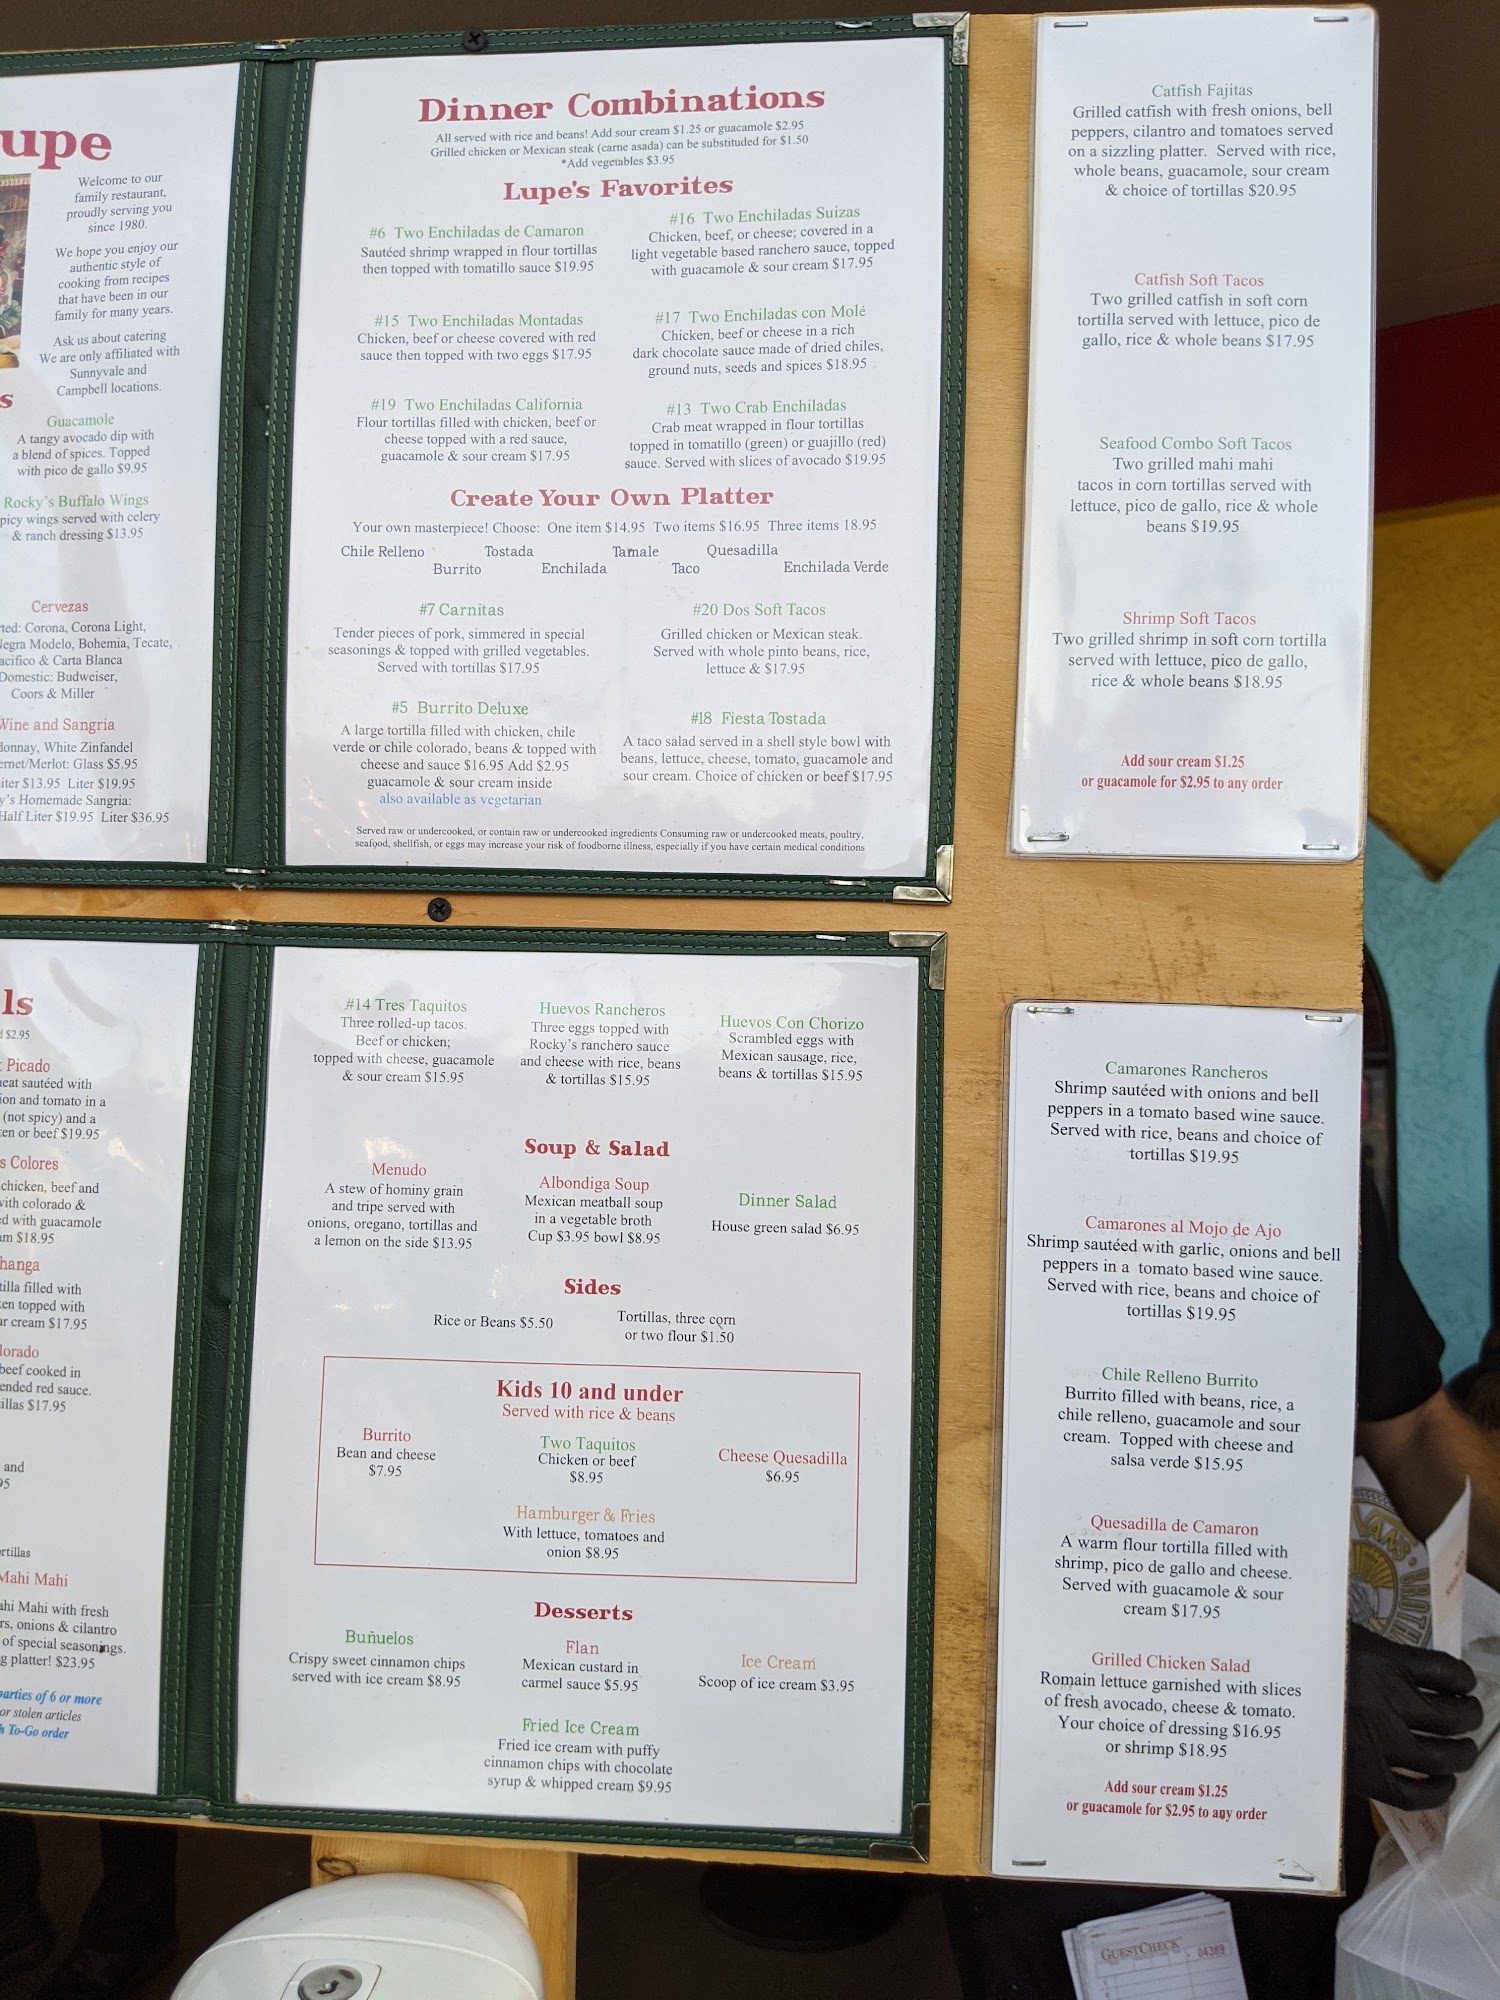 upe
Welcome to our
family restaurant,
proudly serving you
since 1980.
We hope you enjoy our
authentic style of
cooking from recipes
that have been in our
family for many years.
Ask us about catering
We are only affiliated with
Sunnyvale and
Campbell locations.
s
Guacamole
A tangy avocado dip with
a blend of spices. Topped
with pico de gallo $9.95
Rocky's Buffalo Wings
picy wings served with celery
& ranch dressing $13.95
Cervezas
rted: Corona, Corona Light,
Negra Modelo, Bohemia, Tecate,
acifico & Carta Blanca
Domestic: Budweiser,
Coors & Miller
Wine and Sangria
donnay, White Zinfandel
ernet/Merlot: Glass $5.95
iter $13.95 Liter $19.95
y's Homemade Sangria:
Half Liter $19.95 Liter $36.95
Dinner Combinations
All served with rice and beans! Add sour cream $1.25 or guacamole $2.95
Grilled chicken or Mexican steak (carne asada) can be substituded for $1.50
*Add vegetables $3.95
Lupe's Favorites
#6 Two Enchiladas de Camaron
Sautéed shrimp wrapped in flour tortillas
then topped with tomatillo sauce $19.95
#16 Two Enchiladas Suizas
Chicken, beef, or cheese; covered in a
light vegetable based ranchero sauce, topped
with guacamole & sour cream $17.95
#15 Two Enchiladas Montadas
Chicken, beef or cheese covered with red
sauce then topped with two eggs $17.95
#17 Two Enchiladas con Molé
Chicken, beef or cheese in a rich
dark chocolate sauce made of dried chiles,
ground nuts, seeds and spices $18.95
#19 Two Enchiladas California
Flour tortillas filled with chicken, beef or
cheese topped with a red sauce,
guacamole & sour cream $17.95
#13 Two Crab Enchiladas
Crab meat wrapped in flour tortillas
topped in tomatillo (green) or guajillo (red)
sauce. Served with slices of avocado $19.95
Create Your Own Platter
Your own masterpiece! Choose: One item $14.95 Two items $16.95 Three items 18.95
Chile Relleno Tostada Tamale Quesadilla
Burrito Enchilada Taco Enchilada Verde
#7 Carnitas
Tender pieces of pork, simmered in special
seasonings & topped with grilled vegetables.
Served with tortillas $17.95
#20 Dos Soft Tacos
Grilled chicken or Mexican steak.
Served with whole pinto beans, rice,
lettuce & $17.95
#5 Burrito Deluxe
A large tortilla filled with chicken, chile
verde or chile colorado, beans & topped with
cheese and sauce $16.95 Add $2.95
guacamole & sour cream inside
also available as vegetarian
#18 Fiesta Tostada
A taco salad served in a shell style bowl with
beans, lettuce, cheese, tomato, guacamole and
sour cream. Choice of chicken or beef $17.95
Served raw or undercooked, or contain raw or undercooked ingredients Consuming raw or undercooked meats, poultry,
seafood, shellfish, or eggs may increase your risk of foodborne illness, especially if you have certain medical conditions
Catfish Fajitas
Grilled catfish with fresh onions, bell
peppers, cilantro and tomatoes served
on a sizzling platter. Served with rice,
whole beans, guacamole, sour cream
& choice of tortillas $20.95
Catfish Soft Tacos
Two grilled catfish in soft corn
tortilla served with lettuce, pico de
gallo, rice & whole beans $17.95
Seafood Combo Soft Tacos
Two grilled mahi mahi
tacos in corn tortillas served with
lettuce, pico de gallo, rice & whole
beans $19.95
Shrimp Soft Tacos
Two grilled shrimp in soft corn tortilla
served with lettuce, pico de gallo,
rice & whole beans $18.95
Add sour cream $1.25
or guacamole for $2.95 to any order
ls
$2.95
Picado
eat sautéed with
ion and tomato in a
(not spicy) and a
ken or beef $19.95
s Colores
chicken, beef and
with colorado &
ed with guacamole
am $18.95
hanga
tilla filled with
ken topped with
ur cream $17.95
lorado
beef cooked in
ended red sauce.
tillas $17.95
and
95
ortillas
Mahi Mahi
ahi Mahi with fresh
rs, onions & cilantro
of special seasonings.
g platter! $23.95
parties of 6 or more
or stolen articles
h To-Go order
#14 Tres Taquitos
Three rolled-up tacos.
Beef or chicken;
topped with cheese, guacamole
& sour cream $15.95
Huevos Rancheros
Three eggs topped with
Rocky's ranchero sauce
and cheese with rice, beans
& tortillas $15.95
Huevos Con Chorizo
Scrambled eggs with
Mexican sausage, rice,
beans & tortillas $15.95
Soup & Salad
Menudo
A stew of hominy grain
and tripe served with
onions, oregano, tortillas and
a lemon on the side $13.95
Albondiga Soup
Mexican meatball soup
in a vegetable broth
Cup $3.95 bowl $8.95
Dinner Salad
House green salad $6.95
Sides
Rice or Beans $5.50
Tortillas, three corn
or two flour $1.50
Kids 10 and under
Served with rice & beans
Burrito
Bean and cheese
$7.95
Two Taquitos
Chicken or beef
$8.95
Cheese Quesadilla
$6.95
Hamburger & Fries
With lettuce, tomatoes and
onion $8.95
Desserts
Buñuelos
Crispy sweet cinnamon chips
served with ice cream $8.95
Flan
Mexican custard in
carmel sauce $5.95
Ice Cream
Scoop of ice cream $3.95
Fried Ice Cream
Fried ice cream with puffy
cinnamon chips with chocolate
syrup & whipped cream $9.95
Camarones Rancheros
Shrimp sautéed with onions and bell
peppers in a tomato based wine sauce.
Served with rice, beans and choice of
tortillas $19.95
Camarones al Mojo de Ajo
Shrimp sautéed with garlic, onions and bell
peppers in a tomato based wine sauce.
Served with rice, beans and choice of
tortillas $19.95
Chile Relleno Burrito
Burrito filled with beans, rice, a
chile relleno, guacamole and sour
cream. Topped with cheese and
salsa verde $15.95
Quesadilla de Camaron
A warm flour tortilla filled with
shrimp, pico de gallo and cheese.
Served with guacamole & sour
cream $17.95
Grilled Chicken Salad
Romain lettuce garnished with slices
of fresh avocado, cheese & tomato.
Your choice of dressing $16.95
or shrimp $18.95
Add sour cream $1.25
or guacamole for $2.95 to any order
GUESTCHECK
04389